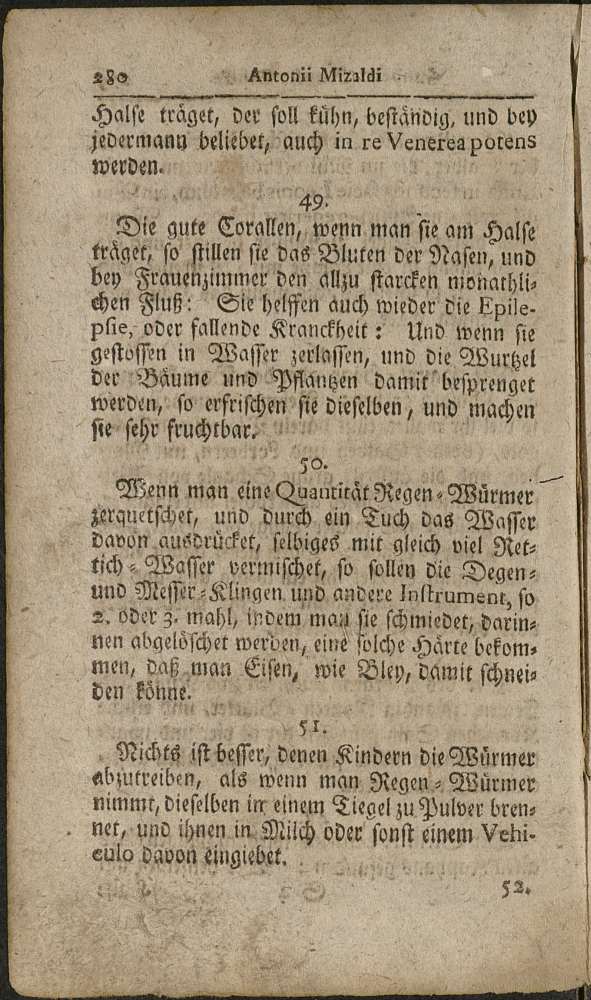 280 Antonii Mizaldi
Halse träget, der soll kühn, beständig, und bey
jedermann beliebet, auch in re Venerea potens
werden.
49.
Die gute Corallen, wenn man sie am Halse
träget, so stillen sie das Bluten der Nasen, und
bey Frauenzimmer den allzu starcken monathli-
chen Fluß: Sie helffen auch wieder die Epile-
psie, oder fallende Kranckheit: Und wenn sie
gestossen in Wasser zerlassen, und die Wurtzel
der Bäume und Pflantzen damit besprenget
werden, so erfrischen sie dieselben, und machen
sie sehr fruchtbar.
50.
Wenn man eine Quantität Regen-Würmer
zerquetschet, und durch ein Tuch das Wasser
davon ausdrücket, selbiges mit gleich viel Ret-
tich-Wasser vermischet, so sollen die Degen-
und Messer-Klingen und andere Instrument, so
2. oder 3. mahl, indem man sie schmiedet, darin-
nen abgelöschet werden, eine solche Härte bekom-
men, daß man Eisen, wie Bley, damit schnei-
den könne.
51.
Nichts ist besser, denen Kindern die Würmer
abzutreiben, als wenn man Regen-Würmer
nimmt, dieselben in einem Tiegel zu Pulver bren-
net, und ihnen in Milch oder sonst einem Vehi-
culo davon eingiebet.
52.